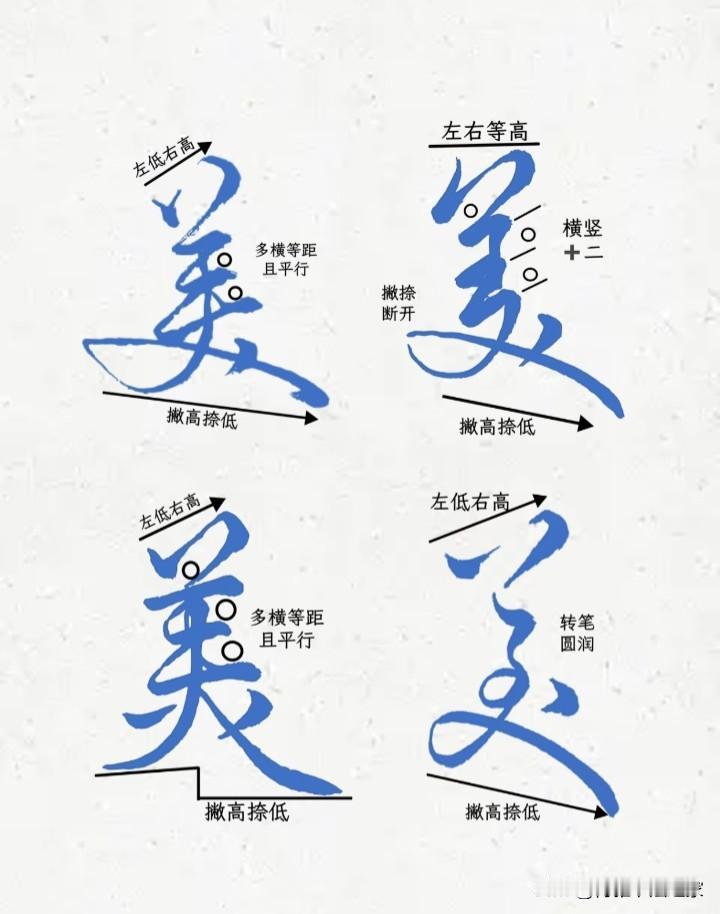 左低右高
美
多横等距
且平行
撇高捺低
左右等高
美
横竖
+二
撇捺
断开
撇高捺低
左低右高
美
多横等距
且平行
撇高捺低
左低右高
美
转笔
圆润
撇高捺低